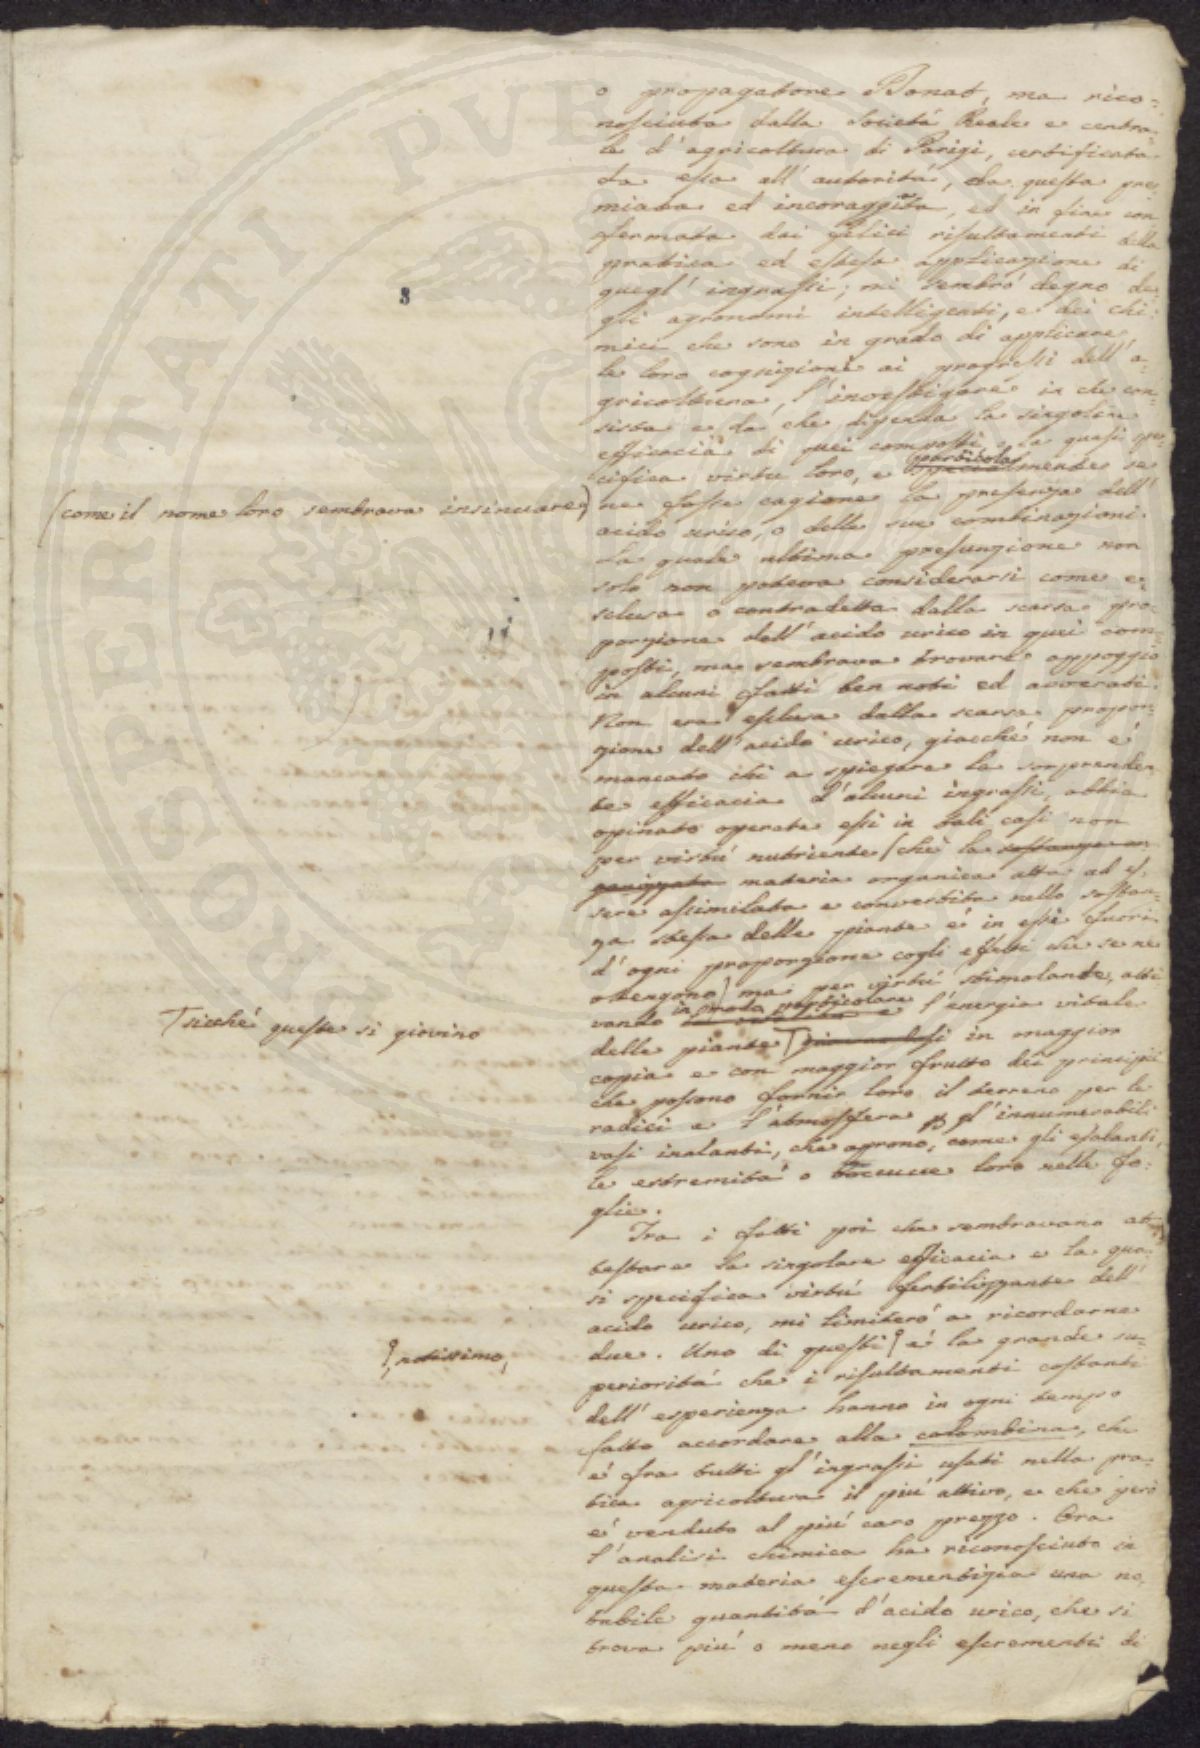 o propagatore Bonat, ma rico-
nosciuta dalla Società Reale e centra-
le d'agricoltura di Parigi, certificata
da essa all'autorità, da questa pre-
miata ed incoraggita, ed in fine con
fermata dai felici risultamenti della
pratica ed estesa applicazione di
quegl'ingrassi; mi sembrò degno de-
gli agronomi intelligenti, e dei chi-
mici che sono in grado di applicare
le loro cognizioni ai progressi dell'a-
gricoltura, l'investigare in che con-
sista e da che dipenda la singolare
efficacia di quei composti, e la quasi spe-
cifica virtù loro, e particolarmente se
(come il nome loro sembrava insinuare)
ne fosse cagione la presenza dell'
acido urico, o delle sue combinazioni.
La quale ultima presunzione non
solo non poteva considerarsi come e-
sclusa o contradetta dalla scarsa pro-
porzione dell'acido urico in quei com-
posti, ma sembrava trovare appoggio
in alcuni fatti ben noti ed avverati.
Non era esclusa dalla scarsa propor-
zione dell'acido urico, giacchè non è
mancato chi a spiegare la sorprenden-
te efficacia d'alcuni ingrassi, abbia
opinato operare essi in tali casi non
per virtù nutriente (chè la sostanza or-
ganizzata materia organica atta ad es-
sere assimilata e convertita nella sostan-
za stessa delle piante è in essi fuori
d'ogni proporzione cogli effetti che se ne
ottengono) ma per virtù stimolante, atti
vando in modo particolare l'energia vitale
delle piante
T sicchè queste si giovino
in maggior
copia e con maggior frutto dei principii
che possono fornir loro il terreno per le
radici e l'atmosfera p gl'innumerabili
vasi inalanti, che aprono, come gli esalanti,
le estremità o boccucce loro nelle fo-
glie.
Tra i fatti poi che sembravano at-
testare la singolare efficacia e la qua-
si specifica virtù fertilizzante dell'
acido urico, mi limiterò a ricordarne
due. Uno di questi,
notissimo,
è la grande su-
periorità che i risultamenti costanti
dell'esperienza hanno in ogni tempo
fatto accordare alla colombina, che
è fra tutti gl'ingrassi usati nella pra-
tica agricoltura il più attivo, e che però
è venduto al più caro prezzo. Ora
l'analisi chimica ha riconosciuto in
questa materia escrementizia una no-
tabile quantità d'acido urico, che si
trova più o meno negli escrementi di
PROSPERITATI PVBLICAE